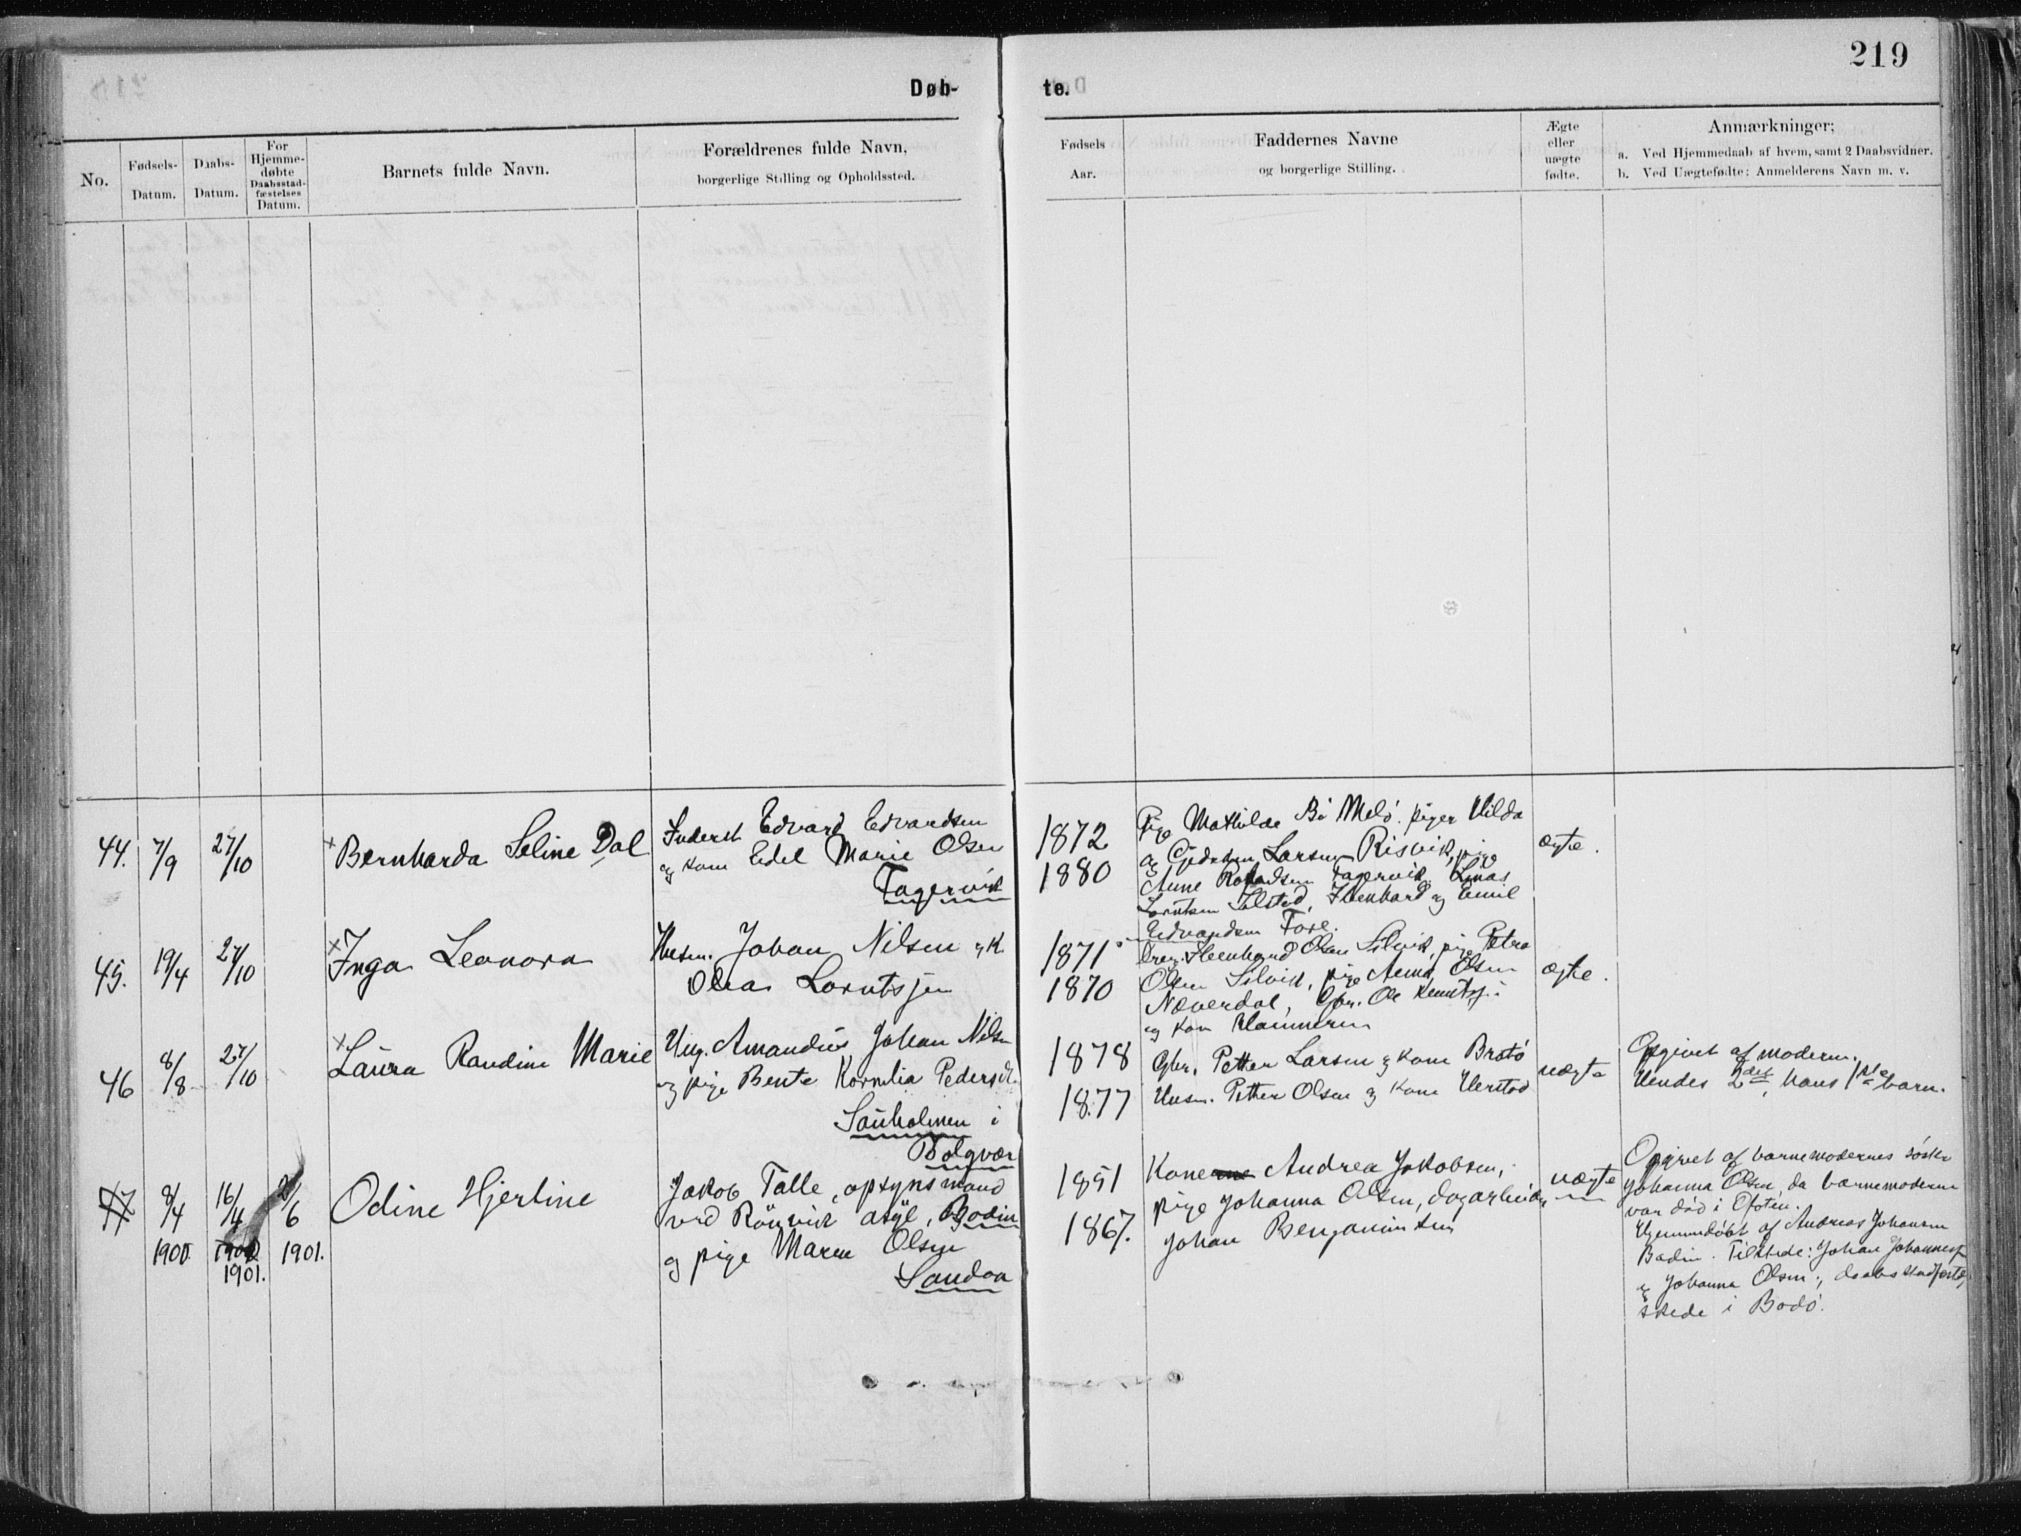 219
Døb- te.
No.
Fødsels-
Datum.
Daabs-
Datum.
For
Hjemme-
døbte
Daabsstad-
fæstelses
Datum.
Barnets fulde Navn.
Forældrenes fulde Navn,
borgerlige Stilling og Opholdssted.
Fødsels
Aar.
Faddernes Navne
og borgerlige Stilling.
Ægte
eller
uægte
fødte.
Anmærkninger;
a. Ved Hjemmedaab af hvem, samt 2 Daabsvidner.
b. Ved Uægtefødte: Anmelderens Navn m. v.
44. 7/9 27/10 Bernharda Seline Dal
Inderst Edvard Edvardsen
og kone Edel Marie Olsen
Fagervik
1872
1880
Pige Mathilde Bø Melø, piger Hilda
og Larsen Risvik, pige
Anne Fagervik,
Lorntsen og Emil
Edvardsen Fore.
ægte.
45. 19/4 27/10 Inga Leonora
Husm. Johan Nilsen og k.
Olea Lorntsen
1871
1870
Olsen Selvik, pige Petra
Olsen Selvik, pige Anna Olsen
Næverdal, Gbr. Ole
og kone
ægte.
46 8/8 27/10 Laura Randine Marie
Ung. Amandus Johan Nilsen
og pige Bente Kornelia Pedersdt.
Sauholmen i
Bolgvær
1878
1877
Gbr. Petter Larsen og kone Bratø
Husm. Petter Olsen og kone
uægte
Opgivet af moderen.
Hendes 2det, hans 1ste barn.
47 8/4 1900. 16/4 1900 1901. 2/6 1901. Odine Hjertine
Jakob Talle, opsynsmand
ved Rønvik asyl, Bodin
og pige Maren Olsen
Sandøa
1851
1867.
Kone Andrea Jakobsen,
pige Johanna Olsen, dagarbeider
Johan Benjaminsen
uægte
Opgivet af barnemoderens søster
Johanna Olsen, da barnemoderen
var død i Ofoten.
Hjemmedøbt af Andreas Johansen
Bodin. Tilstede: Johan Johannesen
og Johanna Olsen; daabsstadfæstelse
skede i Bodø.